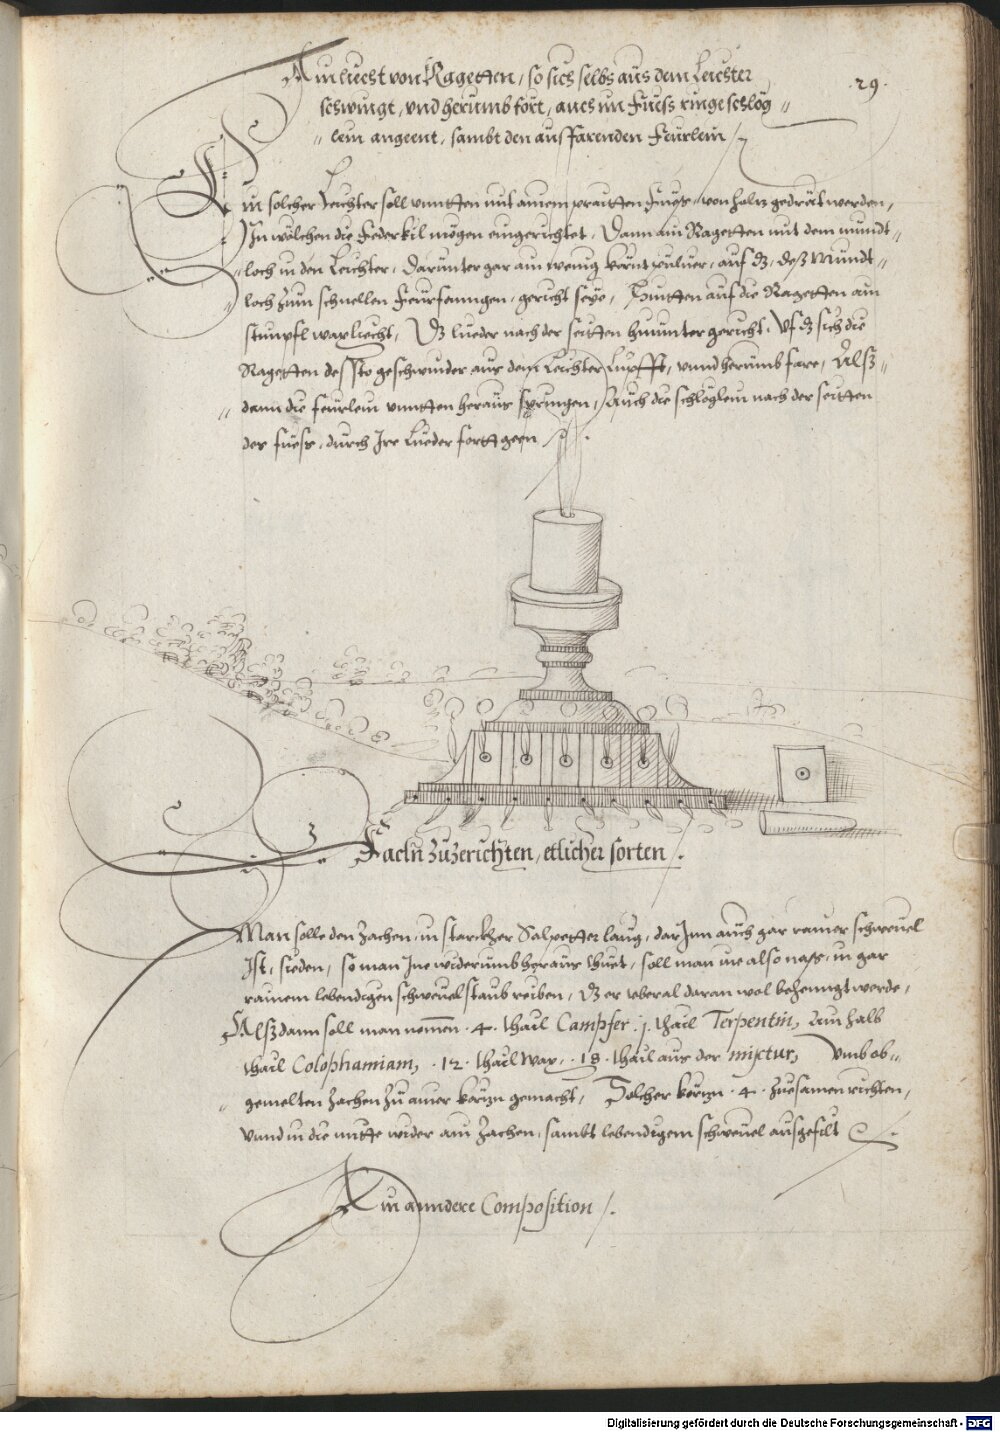 Ain liecht von Ragetten, so sich selbs aus dem Leichter
29.
schwingt, und herumb fört, auch im Fuess ringe schlög
lein angeent, sambt den ausfarenden Feurlein
Ein solcher Leuchter soll unntten mit ainem praitten Fuess, von holtz gedrät werden,
In wölchen die Federkil mögen eingerichtet, Dann ain Ragetten mit dem mundt
loch in den Leichter, darunter gar ain wenig körnt puluer, auf dz, deß Mundt
loch zum schnellen Feurfenngen, gericht seye, Hintten auf die Ragetten ain
stumpfl waxliecht, Dz lueder nach der seitten hinunter gericht, Uf dz sich die
Ragetten dessto geschwinder aus dem Leichter Lupfft, unnd herumb fare, Alß
dann die feürlein unntten heraus springen, Auch die schlöglein nach der seitten
des fuess, durch Ire Lueder fortt geen
Facln zuzerichten, etlicher sorten
Man solle den Zachen, in starckher Salpetter laug, dar Inn auch gar rainer schweuel
Ist, sieden, so man Ine widerumb heraus thuet, soll man ine also nass, in gar
rainem lebendigen schweuel staub reiben, dz er uberal daran wol behenngt werde,
Alß dann soll man nemen .4. thail Campfer .j. thail Terpentin, Ain halb
thail Colophaniam, .12. thail Wax, .18. thail aus der mixtur, Umb ob
gemelten Zachen zu ainer körtzn gemacht, Solcher körtzn .4. zuesamen richten,
unnd in die mitte wider ain Zachen, sambt lebendigem schweuel ausgefilt
Ain anndere Composition
Digitalisierung gefördert durch die Deutsche Forschungsgemeinschaft - DFG